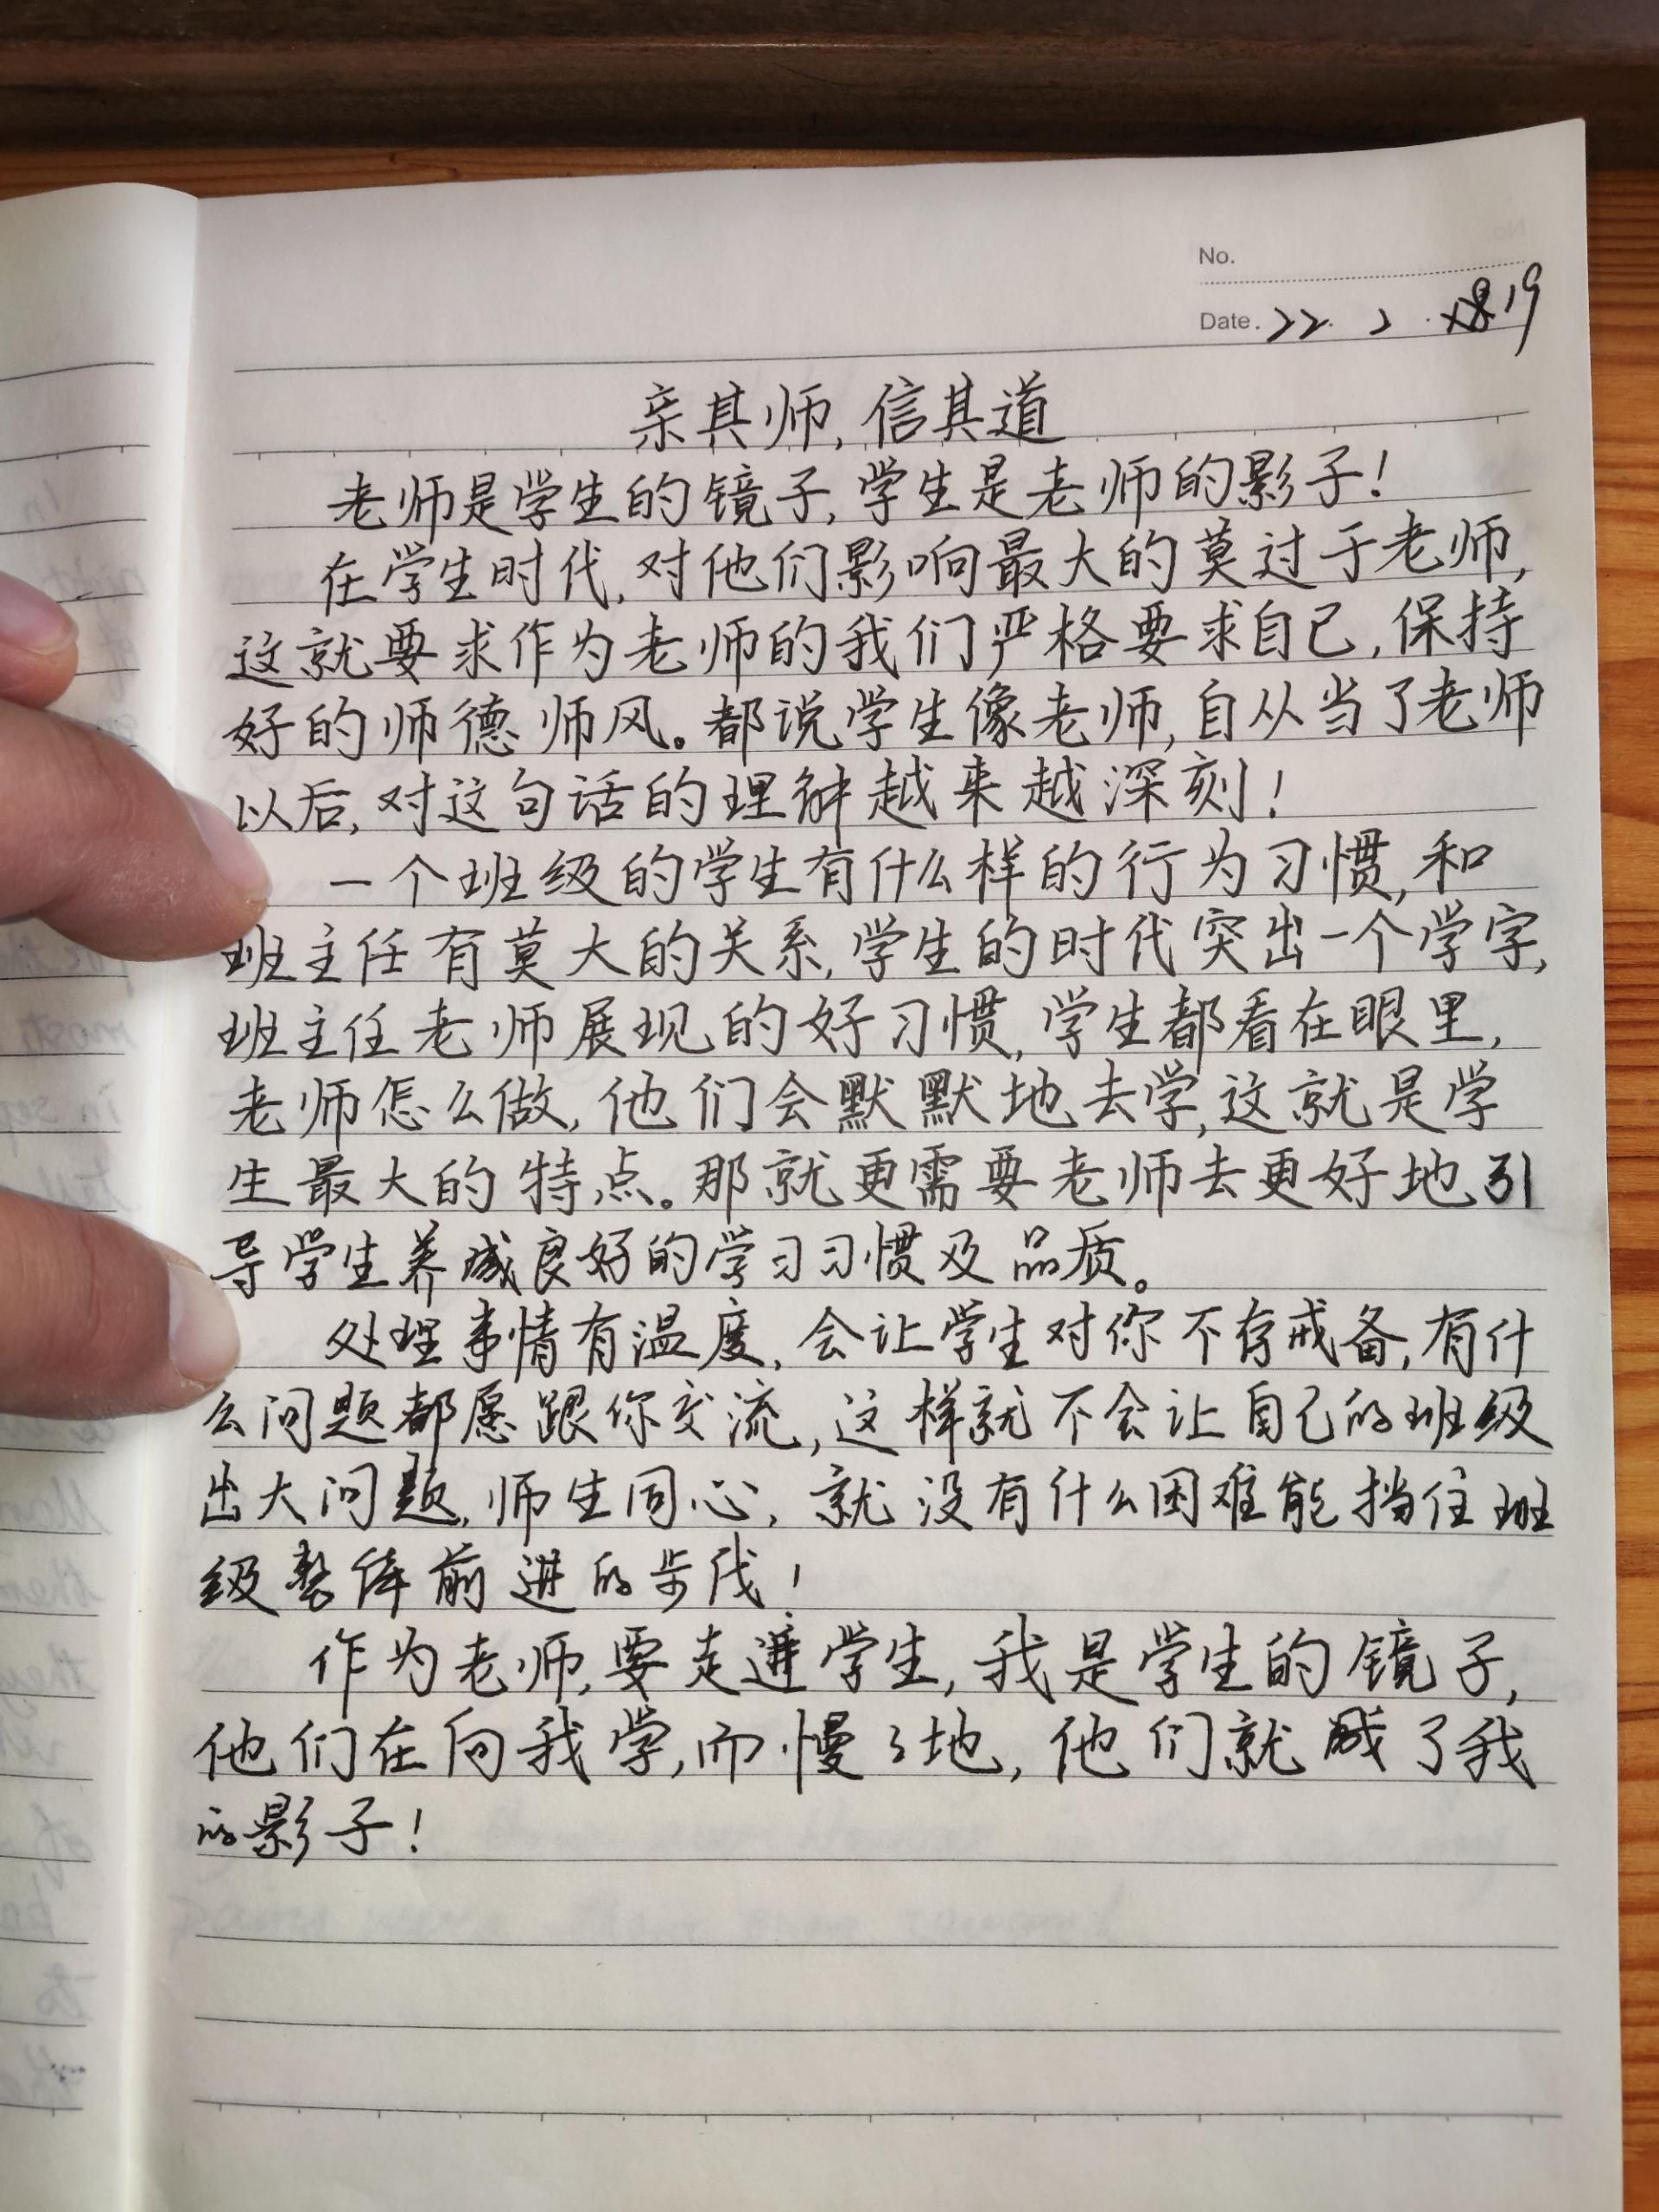 No.
Date. 22. 2. 19
亲其师,信其道
老师是学生的镜子,学生是老师的影子!
在学生时代,对他们影响最大的莫过于老师,
这就要求作为老师的我们严格要求自己,保持
好的师德师风。都说学生像老师,自从当了老师
以后,对这句话的理解越来越深刻!
一个班级的学生有什么样的行为习惯,和
班主任有莫大的关系,学生的时代突出一个学字,
班主任老师展现的好习惯,学生都看在眼里,
老师怎么做,他们会默默地去学,这就是学
生最大的特点。那就更需要老师去更好地引
导学生养成良好的学习习惯及品质。
处理事情有温度,会让学生对你不存戒备,有什
么问题都愿跟你交流,这样就不会让自己的班级
出大问题,师生同心,就没有什么困难能挡住班
级整体前进的步伐!
作为老师,要走进学生,我是学生的镜子,
他们在向我学,而慢々地,他们就成了我
的影子!